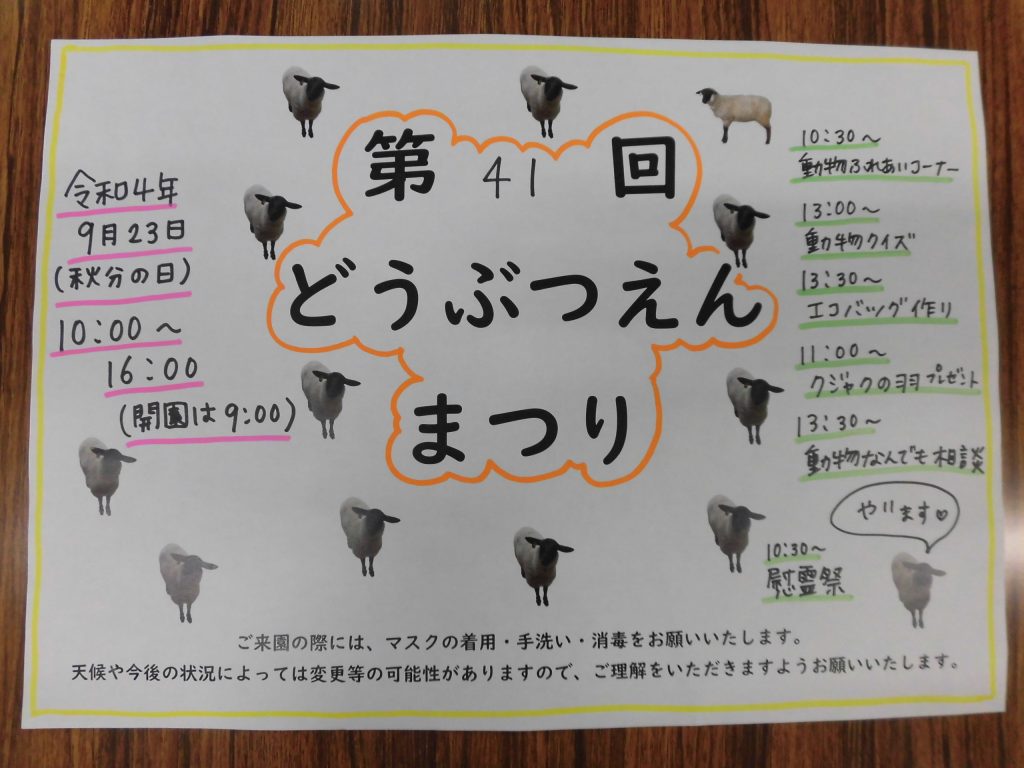 第41回
どうぶつえん
まつり
令和4年
9月23日
(秋分の日)
10:00～
16:00
(開園は9:00)
10:30～
動物ふれあいコーナー
13:00～
動物クイズ
13:30～
エコバッグ作り
11:00～
クジャクの羽プレゼント
13:30～
動物なんでも相談
やります♡
10:30～
慰霊祭
ご来園の際には、マスクの着用・手洗い・消毒をお願いいたします。
天候や今後の状況によっては変更等の可能性がありますので、ご理解をいただきますようお願いいたします。